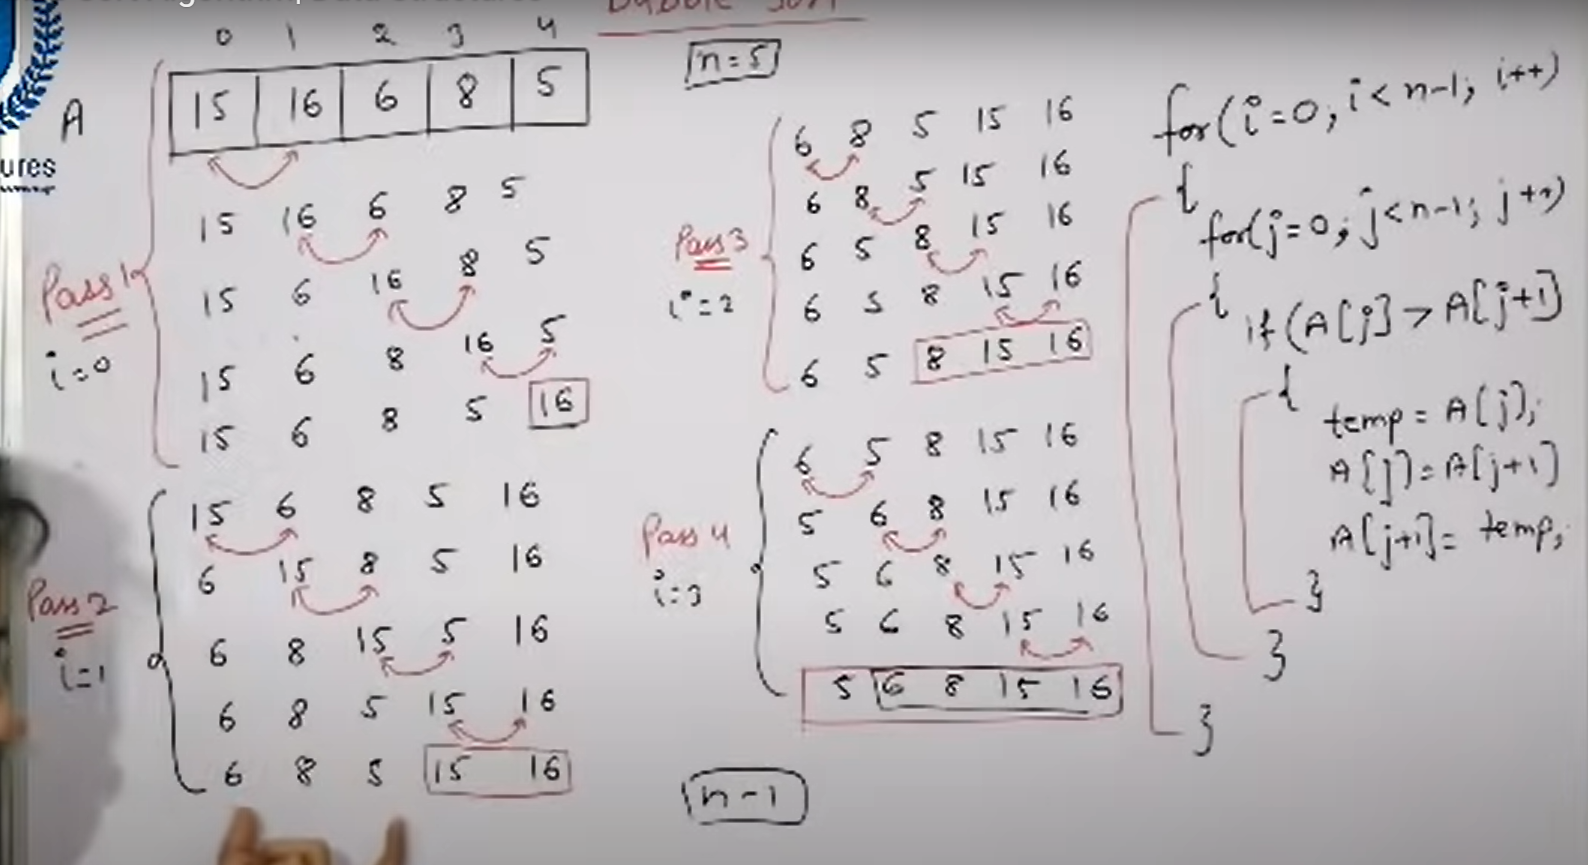 Bubble Sort
0 1 2 3 4
A
15 16 6 8 5
15 16 6 8 5
15 6 16 8 5
15 6 8 16 5
15 6 8 5 16
Pass 1
i=0
15 6 8 5 16
6 15 8 5 16
6 8 15 5 16
6 8 5 15 16
6 8 5 15 16
Pass 2
i=1
n=5
6 8 5 15 16
6 8 5 15 16
6 5 8 15 16
6 5 8 15 16
6 5 8 15 16
Pass 3
i=2
6 5 8 15 16
5 6 8 15 16
5 6 8 15 16
5 6 8 15 16
5 6 8 15 16
Pass 4
i=3
n-1
for(i=0; i<n-1; i++)
{
for(j=0; j<n-1; j++)
{
if(A[j] > A[j+1]
{
temp = A[j];
A[j] = A[j+1]
A[j+1] = temp;
}
}
}
ures